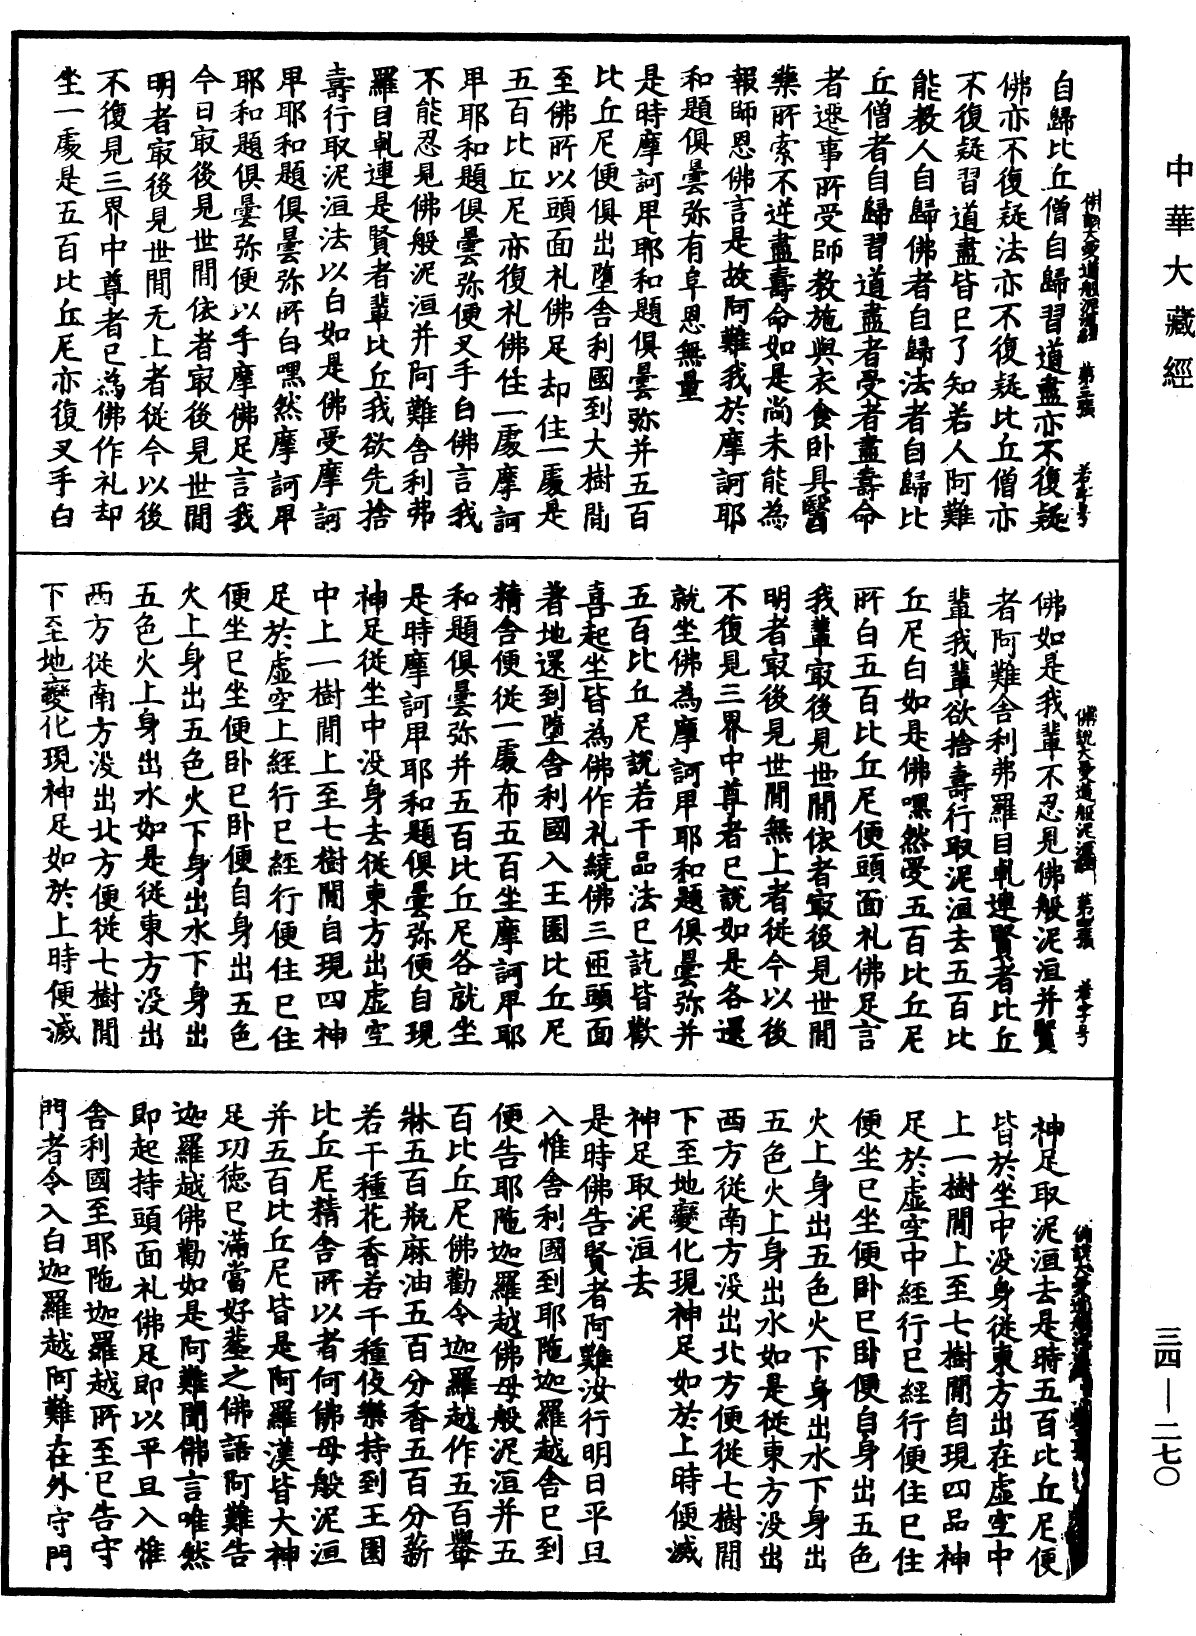 中華大藏經
自歸比丘僧自歸習道盡亦不復疑
佛亦不復疑法亦不復疑比丘僧亦
不復疑習道盡皆已了知若人阿難
能教人自歸佛者自歸法者自歸比
丘僧者自歸習道盡者受者盡壽命
者遷事所受師教施與衣食卧具醫
藥所索不逆盡壽命如是尚未能為
報師恩佛言是故阿難我於摩訶耶
和題俱曇弥有阜恩無量
是時摩訶卑耶和題俱曇弥并五百
比丘尼便俱出墮舍利國到大樹間
至佛所以頭面礼佛足却住一處是
五百比丘尼亦復礼佛住一處摩訶
卑耶和題俱曇弥便叉手白佛言我
不能忍見佛般泥洹并阿難舍利弗
羅目乹連是賢者輩比丘我欲先捨
壽行取泥洹法以白如是佛受摩訶
卑耶和題俱曇弥所白嘿然摩訶卑
耶和題俱曇弥便以手摩佛足言我
今日㝡後見世間依者㝡後見世間
明者㝡後見世間无上者從今以後
不復見三界中尊者已為佛作礼却
坐一處是五百比丘尼亦復叉手白
佛說大愛道般泥洹經 第三張 若字号
佛如是我輩不忍見佛般泥洹并賢
者阿難舍利弗羅目乹連賢者比丘
輩我輩欲捨壽行取泥洹去五百比
丘尼白如是佛嘿然受五百比丘尼
所白五百比丘尼便頭面礼佛足言
我輩㝡後見世間依者㝡後見世間
明者㝡後見世間無上者從今以後
不復見三界中尊者已說如是各還
就坐佛為摩訶卑耶和題俱曇弥并
五百比丘尼說若干品法已訖皆歡
喜起坐皆為佛作礼繞佛三匝頭面
著地還到墮舍利國入王園比丘尼
精舍便從一處布五百坐摩訶卑耶
和題俱曇弥并五百比丘尼各就坐
是時摩訶卑耶和題俱曇弥便自現
神足從坐中没身去從東方出虛空
中上一樹間上至七樹間自現四神
足於虛空上經行已經行便住已住
便坐已坐便卧已卧便自身出五色
火上身出五色火下身出水下身出
五色火上身出水如是從東方没出
西方從南方没出北方便從七樹間
下至地變化現神足如於上時便滅
佛說大愛道般泥洹經 第四張 若字号
神足取泥洹去是時五百比丘尼便
皆於坐中没身從東方出在虛空中
上一樹間上至七樹間自現四品神
足於虛空中經行已經行便住已住
便坐已坐便卧已卧便自身出五色
火上身出五色火下身出水下身出
五色火上身出水如是從東方没出
西方從南方没出北方便從七樹間
下至地變化現神足如於上時便滅
神足取泥洹去
是時佛告賢者阿難汝行明日平旦
入惟舍利國到耶陁迦羅越舍已到
便告耶陁迦羅越佛母般泥洹并五
百比丘尼佛勸令迦羅越作五百轝
牀五百瓶麻油五百分香五百分薪
若干種花香若干種伎樂持到王園
比丘尼精舍所以者何佛母般泥洹
并五百比丘尼皆是阿羅漢皆大神
足功徳已滿當好葬之佛語阿難告
迦羅越佛勸如是阿難聞佛言唯然
即起持頭面礼佛足即以平旦入惟
舍利國至耶陁迦羅越所至已告守
門者令入白迦羅越阿難在外守門
三四—二七〇